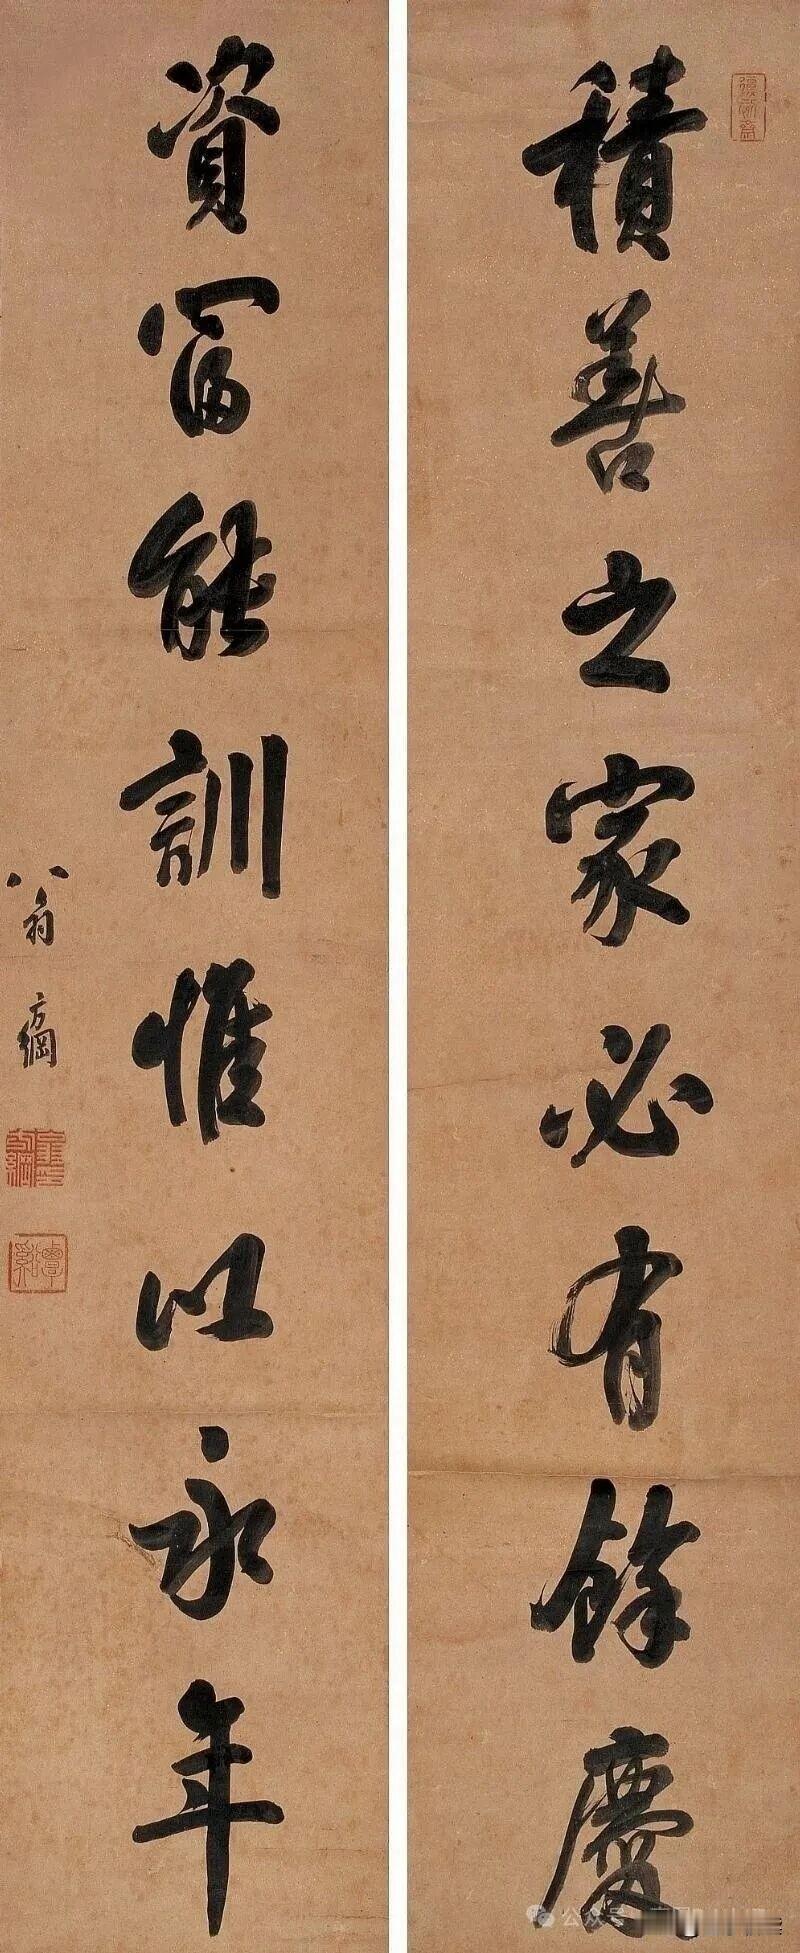 積善之家必有餘慶
資富能訓惟以永年
翁方綱
公众号